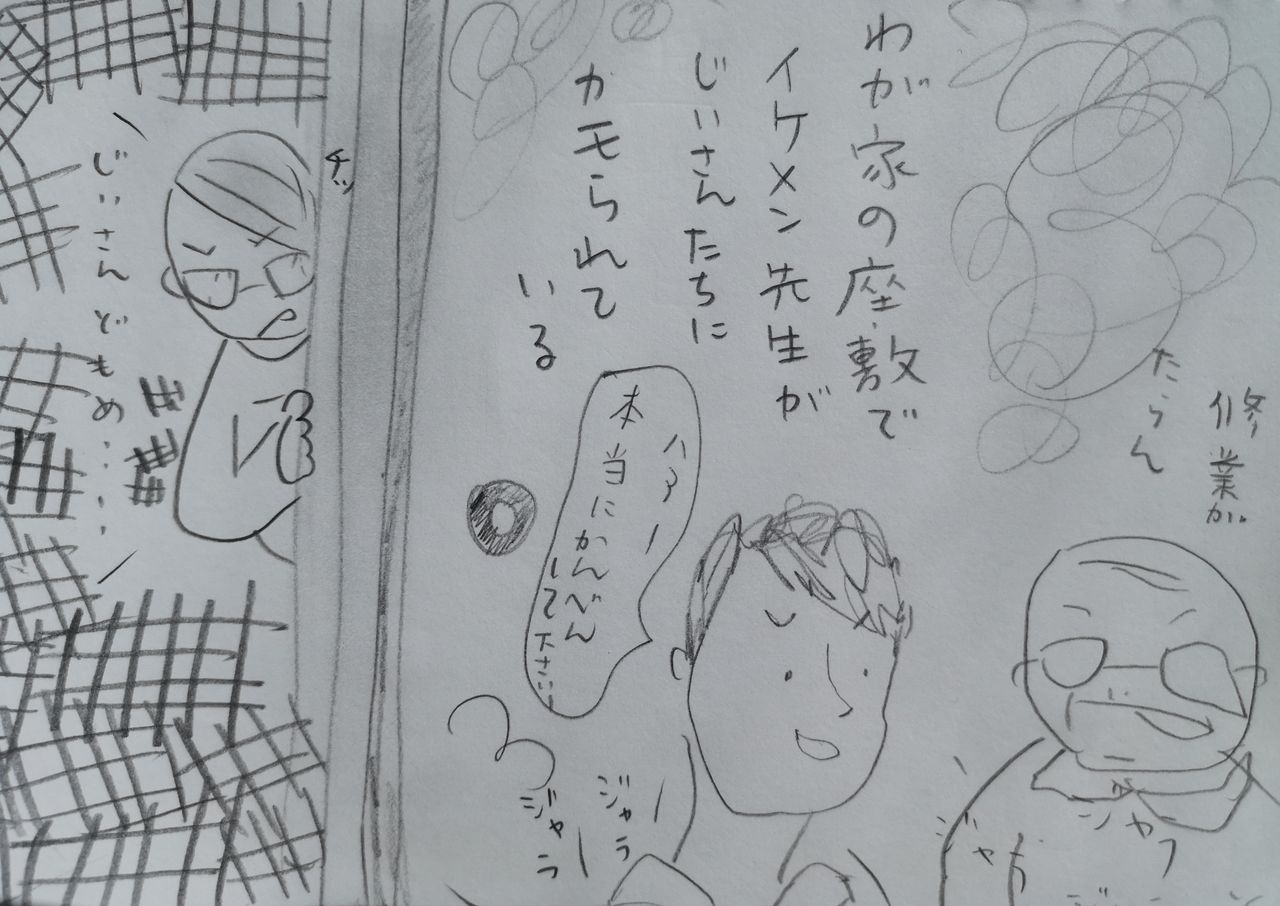 修業が
たらん
わが家の座敷で
イケメン先生が
じいさんたちに
カモられて
いる
ハアー
本当にかんべん
して下さいー
ジャラ
ジャラ
ジャラ
チッ
じいさんどもめ……